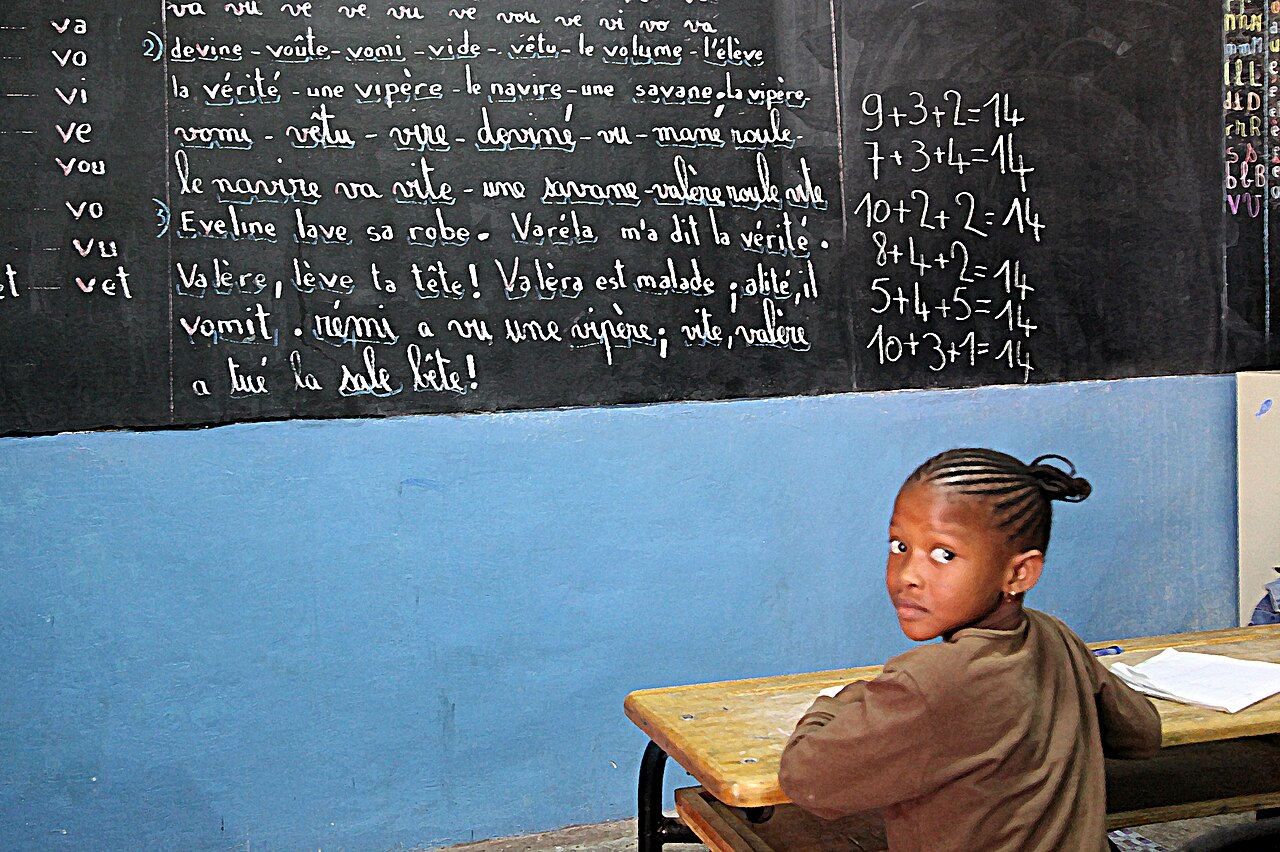 va
vo
vi
ve
vou
vo
vu
et vet
va vu ve ve vu ve vou ve vi vo va
2) devine - voûte - vomi - vide - vêtu - le volume - l'élève
la vérité - une vipère - le navire - une savane. la vipère
vomi - vêtu - vire - deviné - vu - mané roule -
le navire va vite - une savane - valère roule vite
3) Eveline lave sa robe. Varéla m'a dit la vérité.
Valère, lève ta tête! Valèra est malade ; alité, il
vomit. rémi a vu une vipère; vite, valère
a tué la sale bête!
9+3+2=14
7+3+4=14
10+2+2=14
8+4+2=14
5+4+5=14
10+3+1=14
l l L
d d D
r r R
s s
b b B
V U